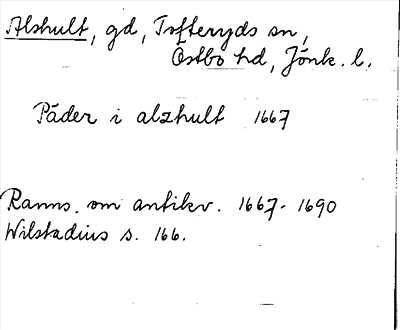 Alshult, gd, Tofteryds sn,
Östbo hd, Jönk. l.
Påder i alzhult 1667
Ranns. om antikv. 1667-1690
Wilstadius s. 166.